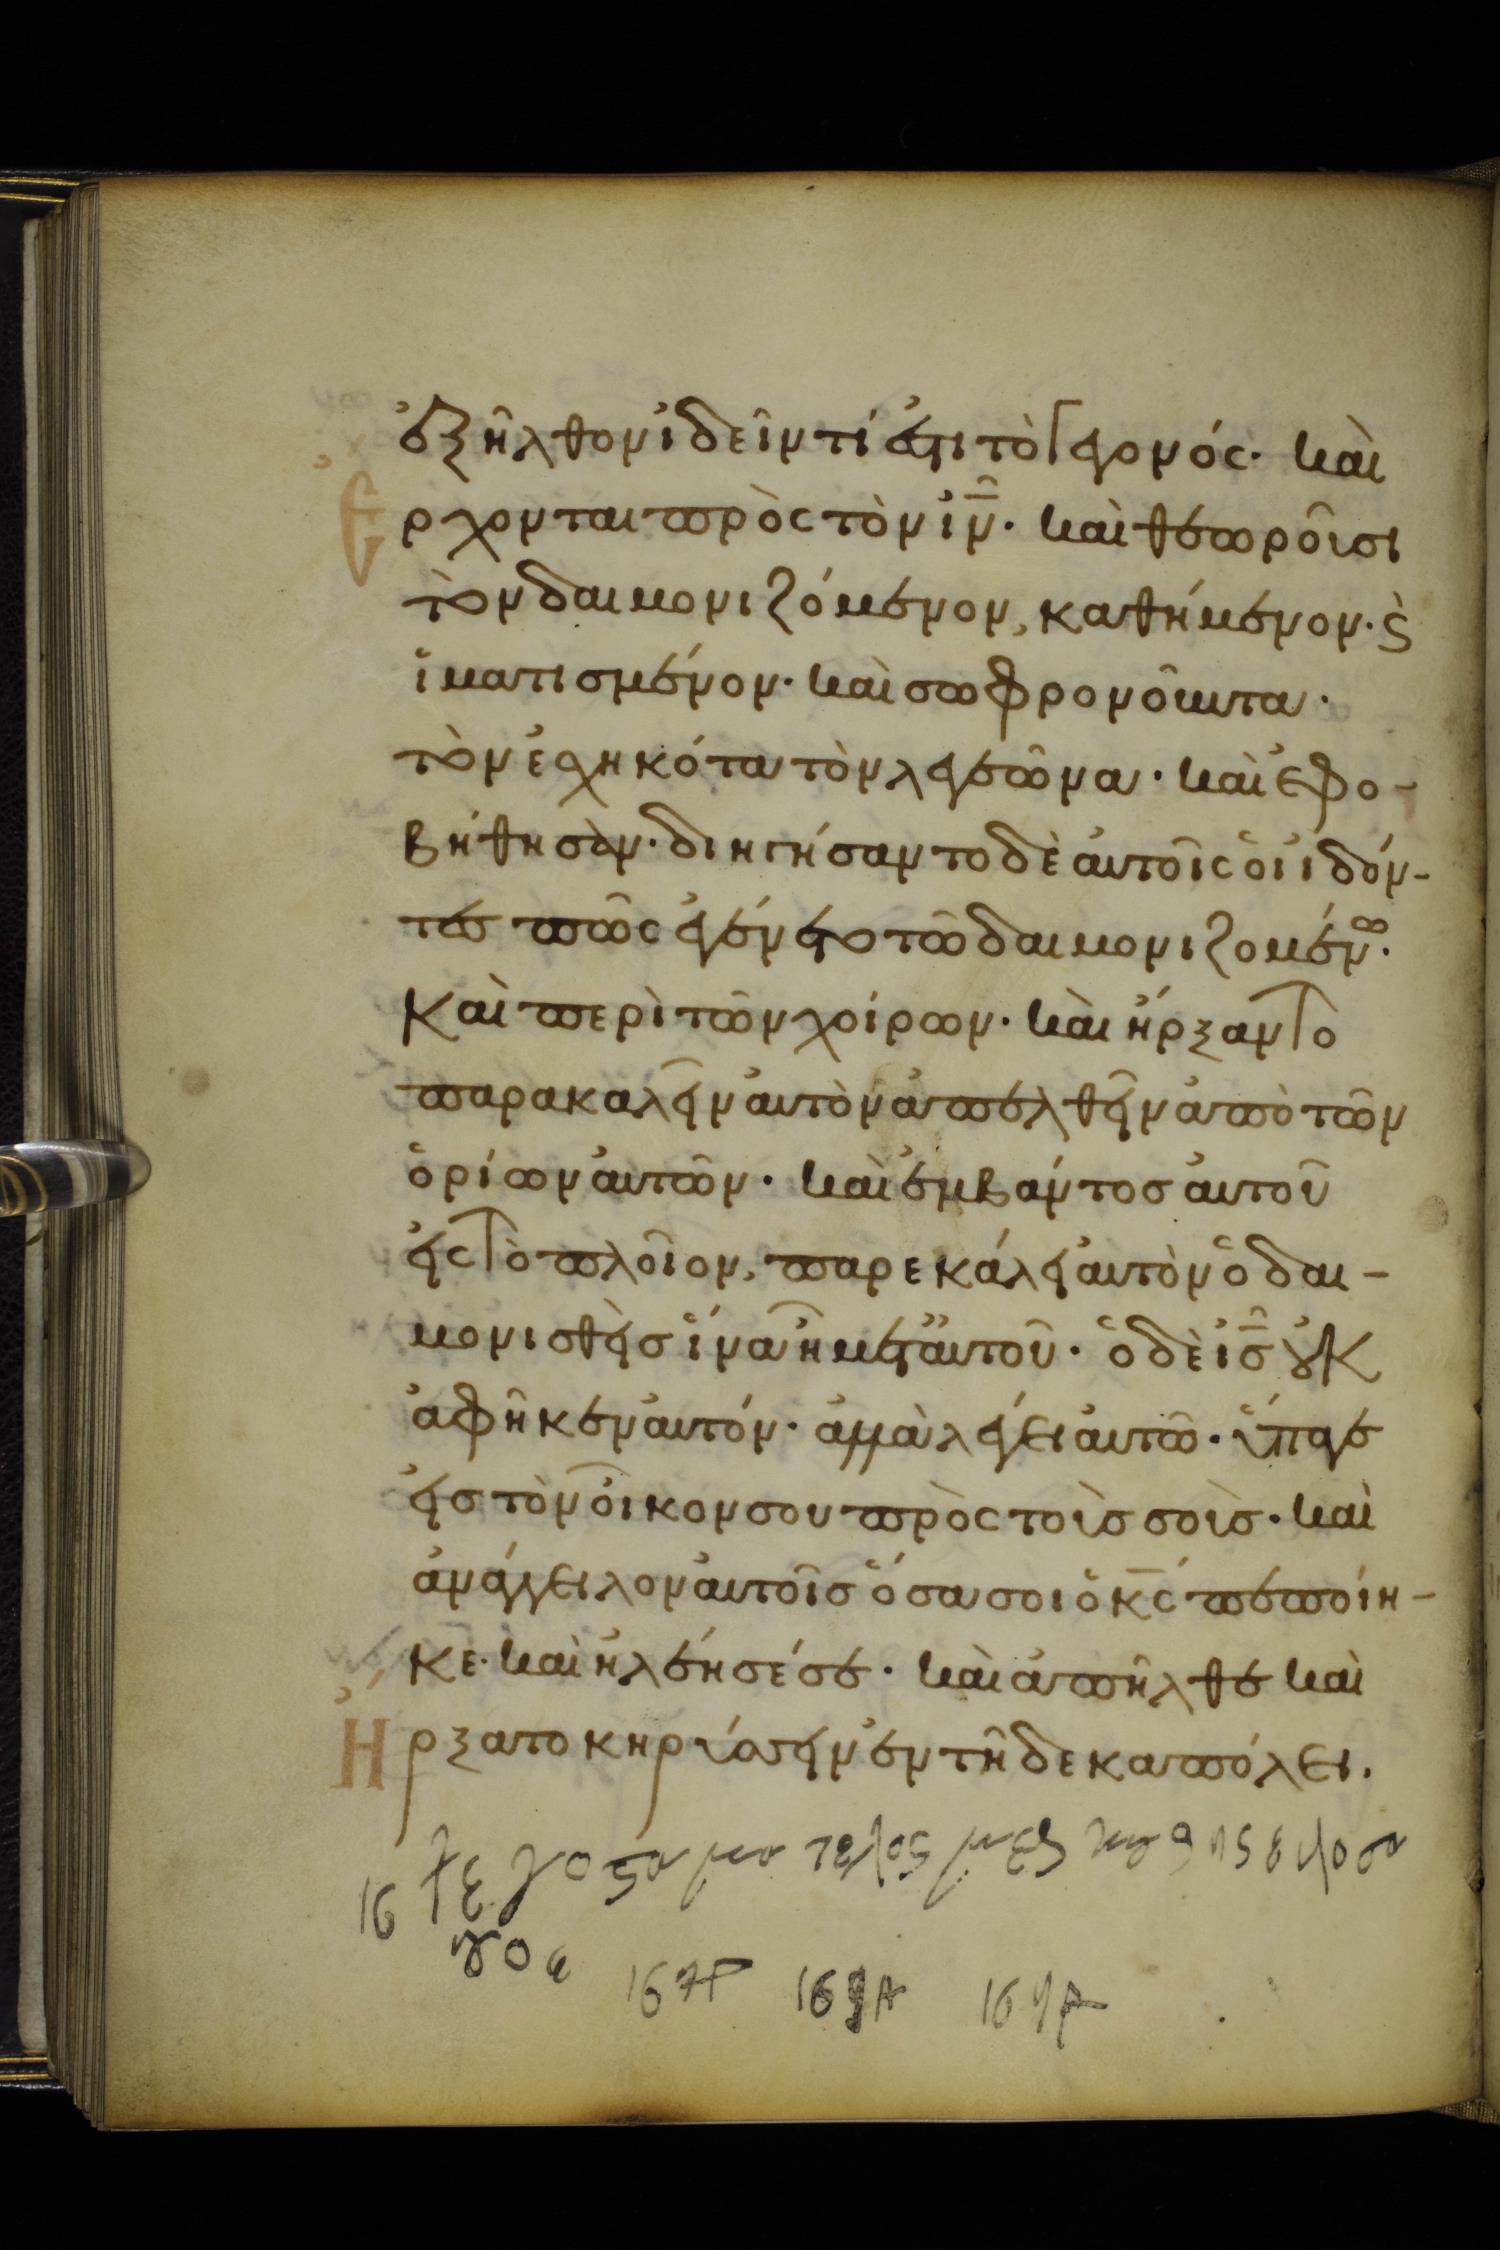 ἐξῆλθον ἰδεῖν τί ἐστι τὸ γεγονός· καὶ
Ἔρχονται πρὸς τὸν ἰν̅· καὶ θεωροῦσι
τὸν δαιμονιζόμενον, καθήμενον· ϗ
ἱματισμένον· καὶ σωφρονοῦντα·
τὸν ἐσχηκότα τὸν λεγεῶνα· καὶ ἐφο-
βήθησαν· διηγήσαντο δὲ αὐτοῖς οἱ ἰδόν-
τες πῶς ἐγένετο τῶ δαιμονιζομένω·
Καὶ περὶ τῶν χοίρων· καὶ ἤρξαντο
παρακαλεῖν αὐτὸν ἀπελθεῖν ἀπὸ τῶν
ὁρίων αὐτῶν· καὶ ἐμβάντος αὐτοῦ
εἰς τὸ πλοῖον, παρεκάλει αὐτὸν ὁ δαι-
μονισθεὶς ἵνα ἦ μετ' αὐτοῦ· ὁ δὲ ἰς̅ οὐκ
ἀφῆκεν αὐτόν· ἀλλὰ λέγει αὐτῶ· ὕπαγε
εἰς τὸν οἶκον σου πρὸς τοὺς σοὺς· καὶ
ἀνάγγειλον αὐτοῖς ὅσα σοι ὁ κς̅ πεποίη-
κε· καὶ ἠλέησέ σε· καὶ ἀπῆλθε καὶ
Ἤρξατο κηρύσσειν ἐν τῆ δεκαπόλει.